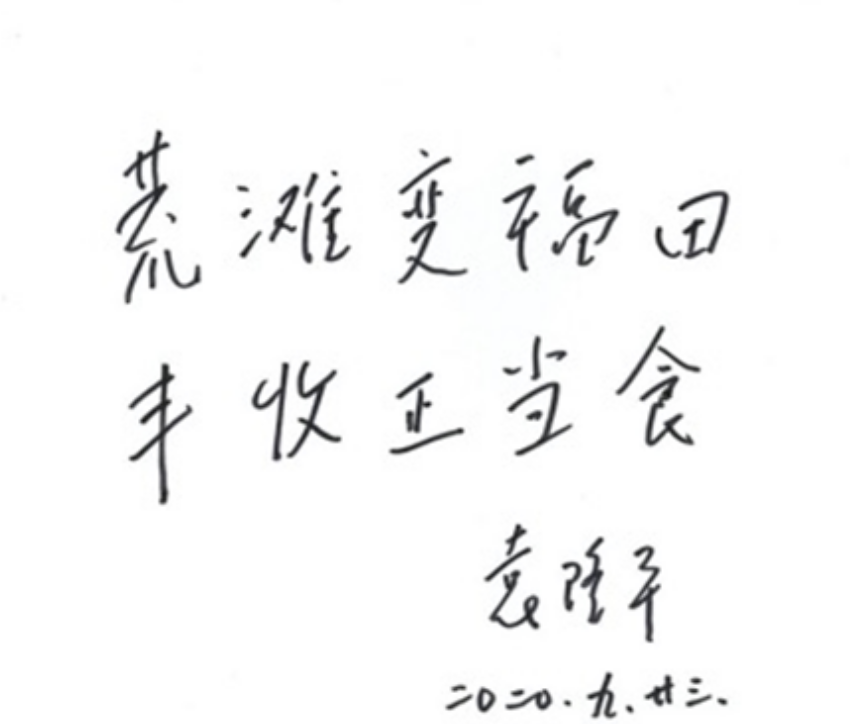 荒滩变福田
丰收正当食
袁隆平
二〇二〇.九.廿三.